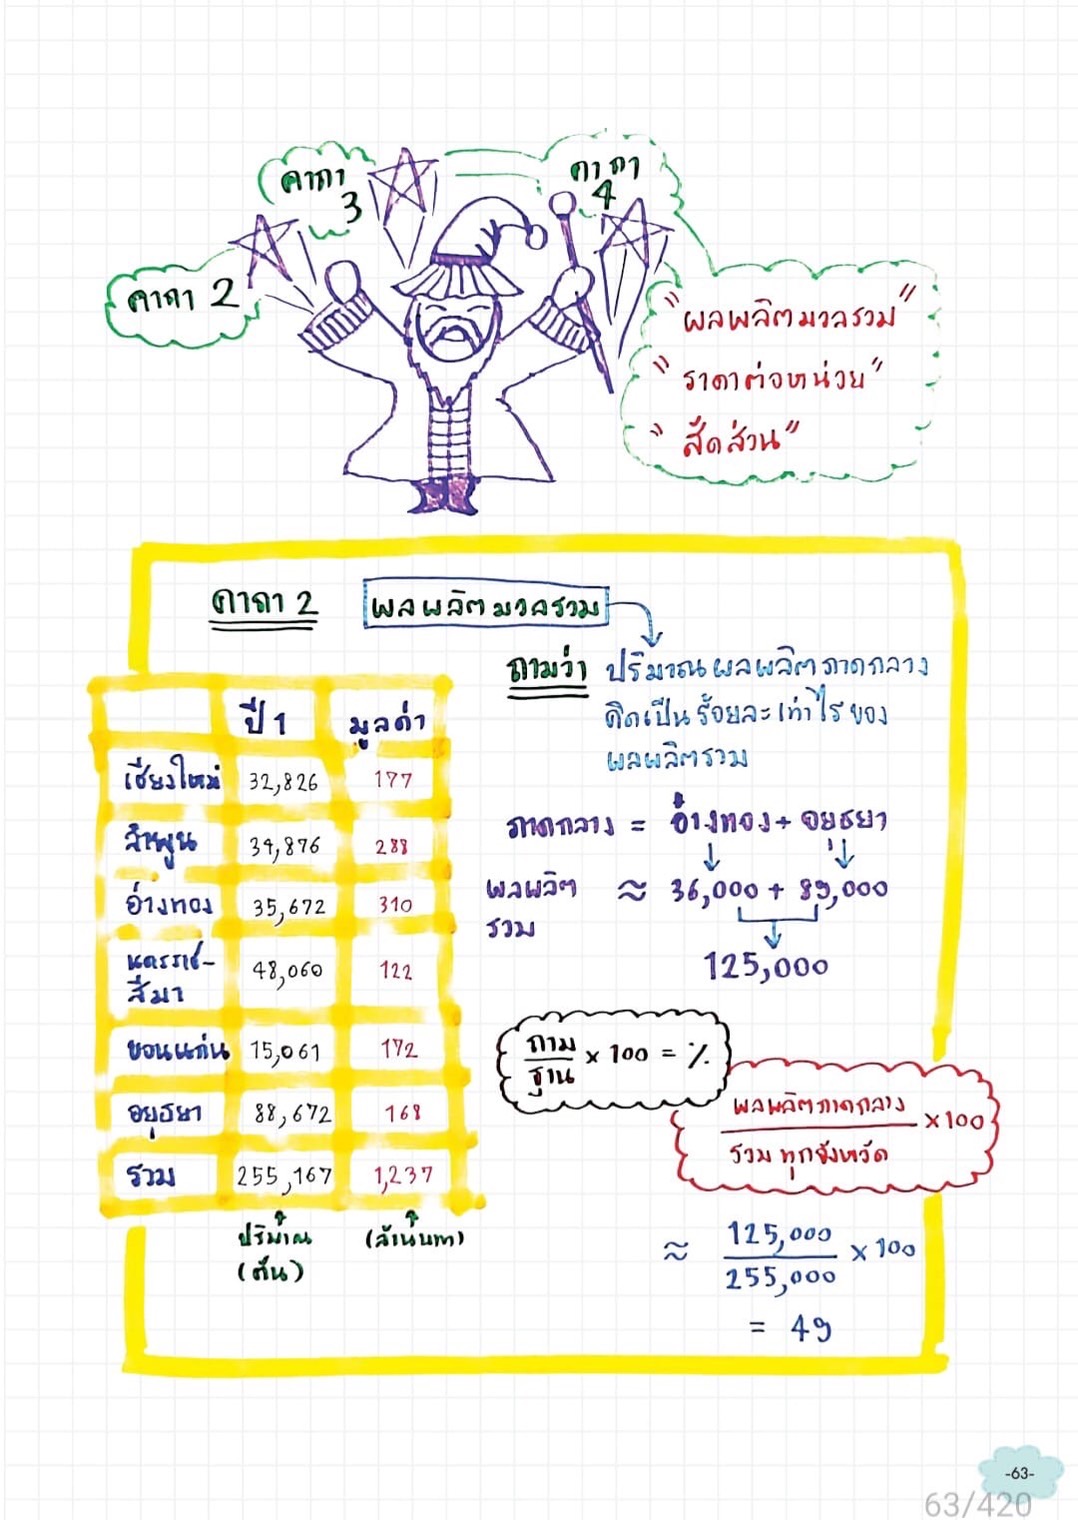 คาถา 3
คาถา 4
คาถา 2
"ผลผลิตมวลรวม"
"ราคาต่อหน่วย"
"สัดส่วน"
คาถา 2 ผลผลิตมวลรวม
ถามว่า ปริมาณผลผลิตภาคกลาง
คิดเป็นร้อยละเท่าไรของ
ผลผลิตรวม
ปี 1 มูลค่า
เชียงใหม่ 32,826 177
ลำพูน 34,876 288
อ่างทอง 35,672 310
นครราช-
สีมา 48,060 122
ขอนแก่น 15,061 172
อยุธยา 88,672 168
รวม 255,167 1,237
ปริมาณ (ล้านบาท)
(ตัน)
ภาคกลาง = อ่างทอง + อยุธยา
ผลผลิต ≈ 36,000 + 89,000
รวม
125,000
ถาม
ฐาน × 100 = %
ผลผลิตภาคกลาง
รวมทุกจังหวัด ×100
≈ 125,000
255,000 × 100
= 49
-63-
63/420